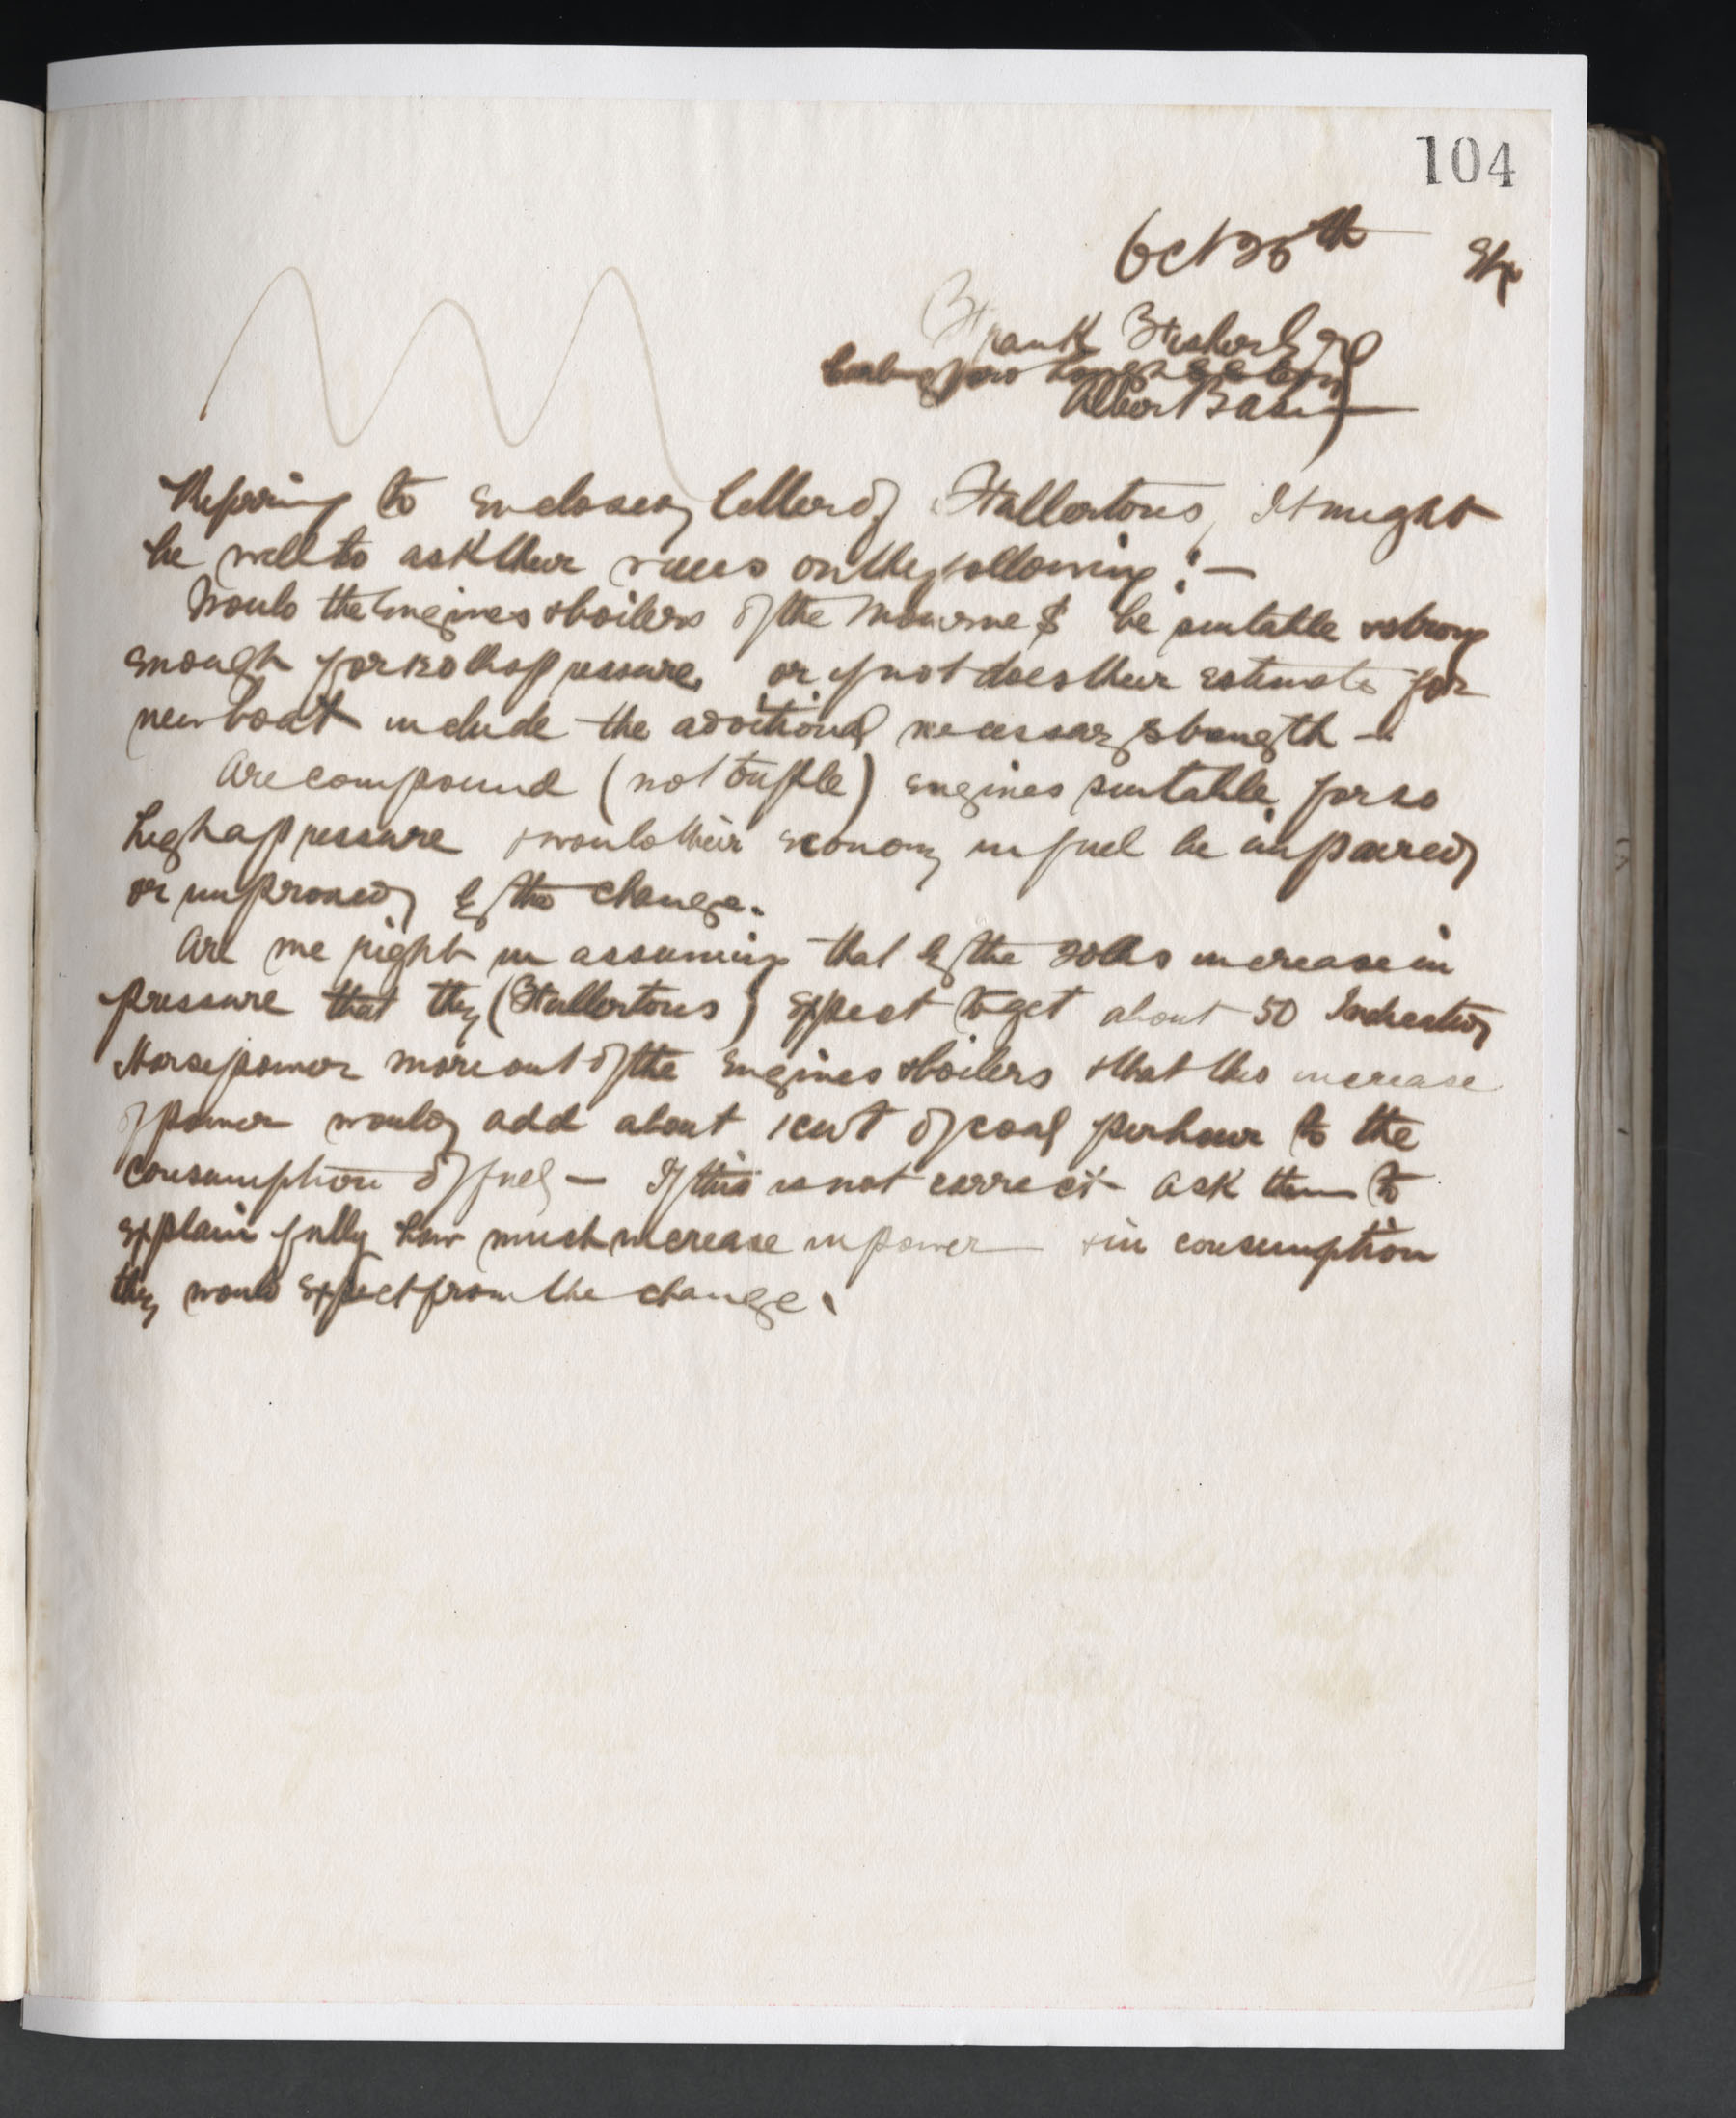 104
Oct 25th
Frank Fisher Esq
Albert Basin
Refering to enclosed letter of Fullertons, It might
be well to ask their views on the following :—
Would the Engines & boilers of the Mourne $ be suitable & strong
enough for 130 lbs pressure, or if not does their estimate for
new boat include the additional necessary strength —
Are compound (not triple) engines suitable for so
high a pressure & would their economy in fuel be impaired
or improved by the change.
Are we right in assuming that by the 30lbs increase in
pressure that they (Fullertons) expect to get about 50 Indicated
Horsepower more out of the Engines & boilers & that this increase
of power would add about 1 cwt of coal per hour to the
consumption of fuel — If this is not correct ask them to
explain fully how much increase in power & in consumption
they would expect from the change.